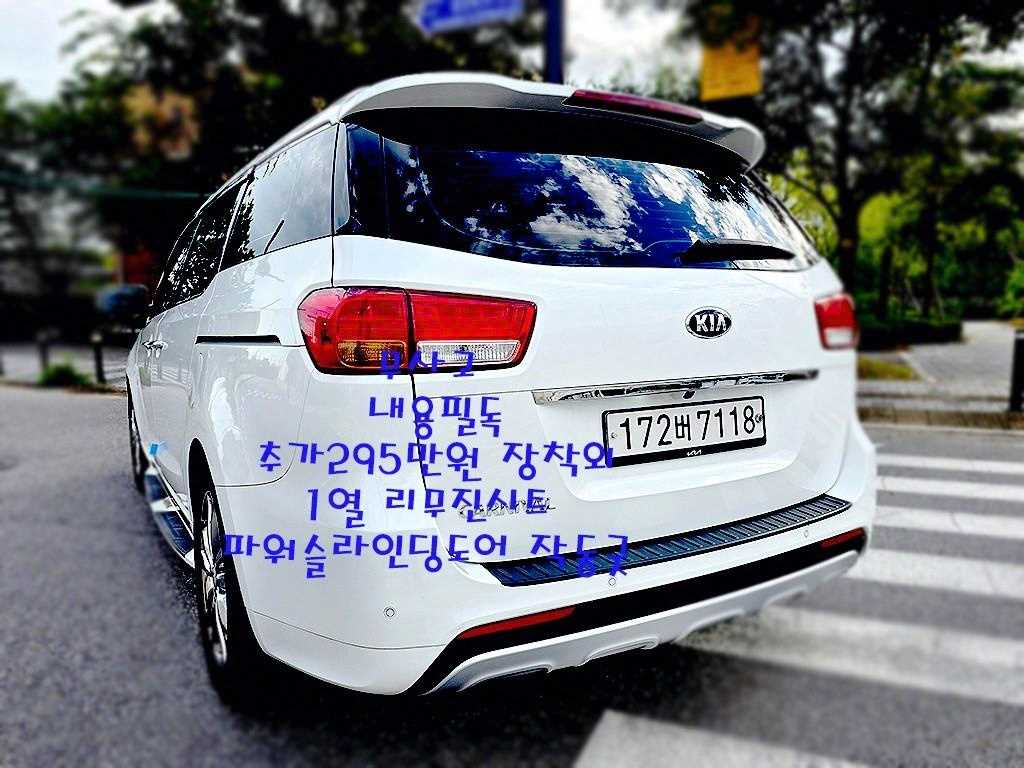 KIA
172버 7118
무사고
내용필독
추가295만원 장착외
1열 리무진시트
CARNIVAL
파워슬라인딩도어 작동굿